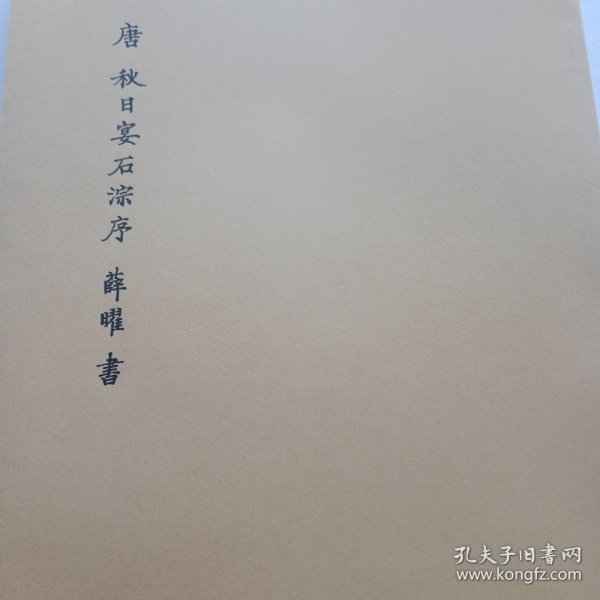 唐 秋日宴石淙序 薛曜 書
孔夫子旧書网
www.kongfz.com